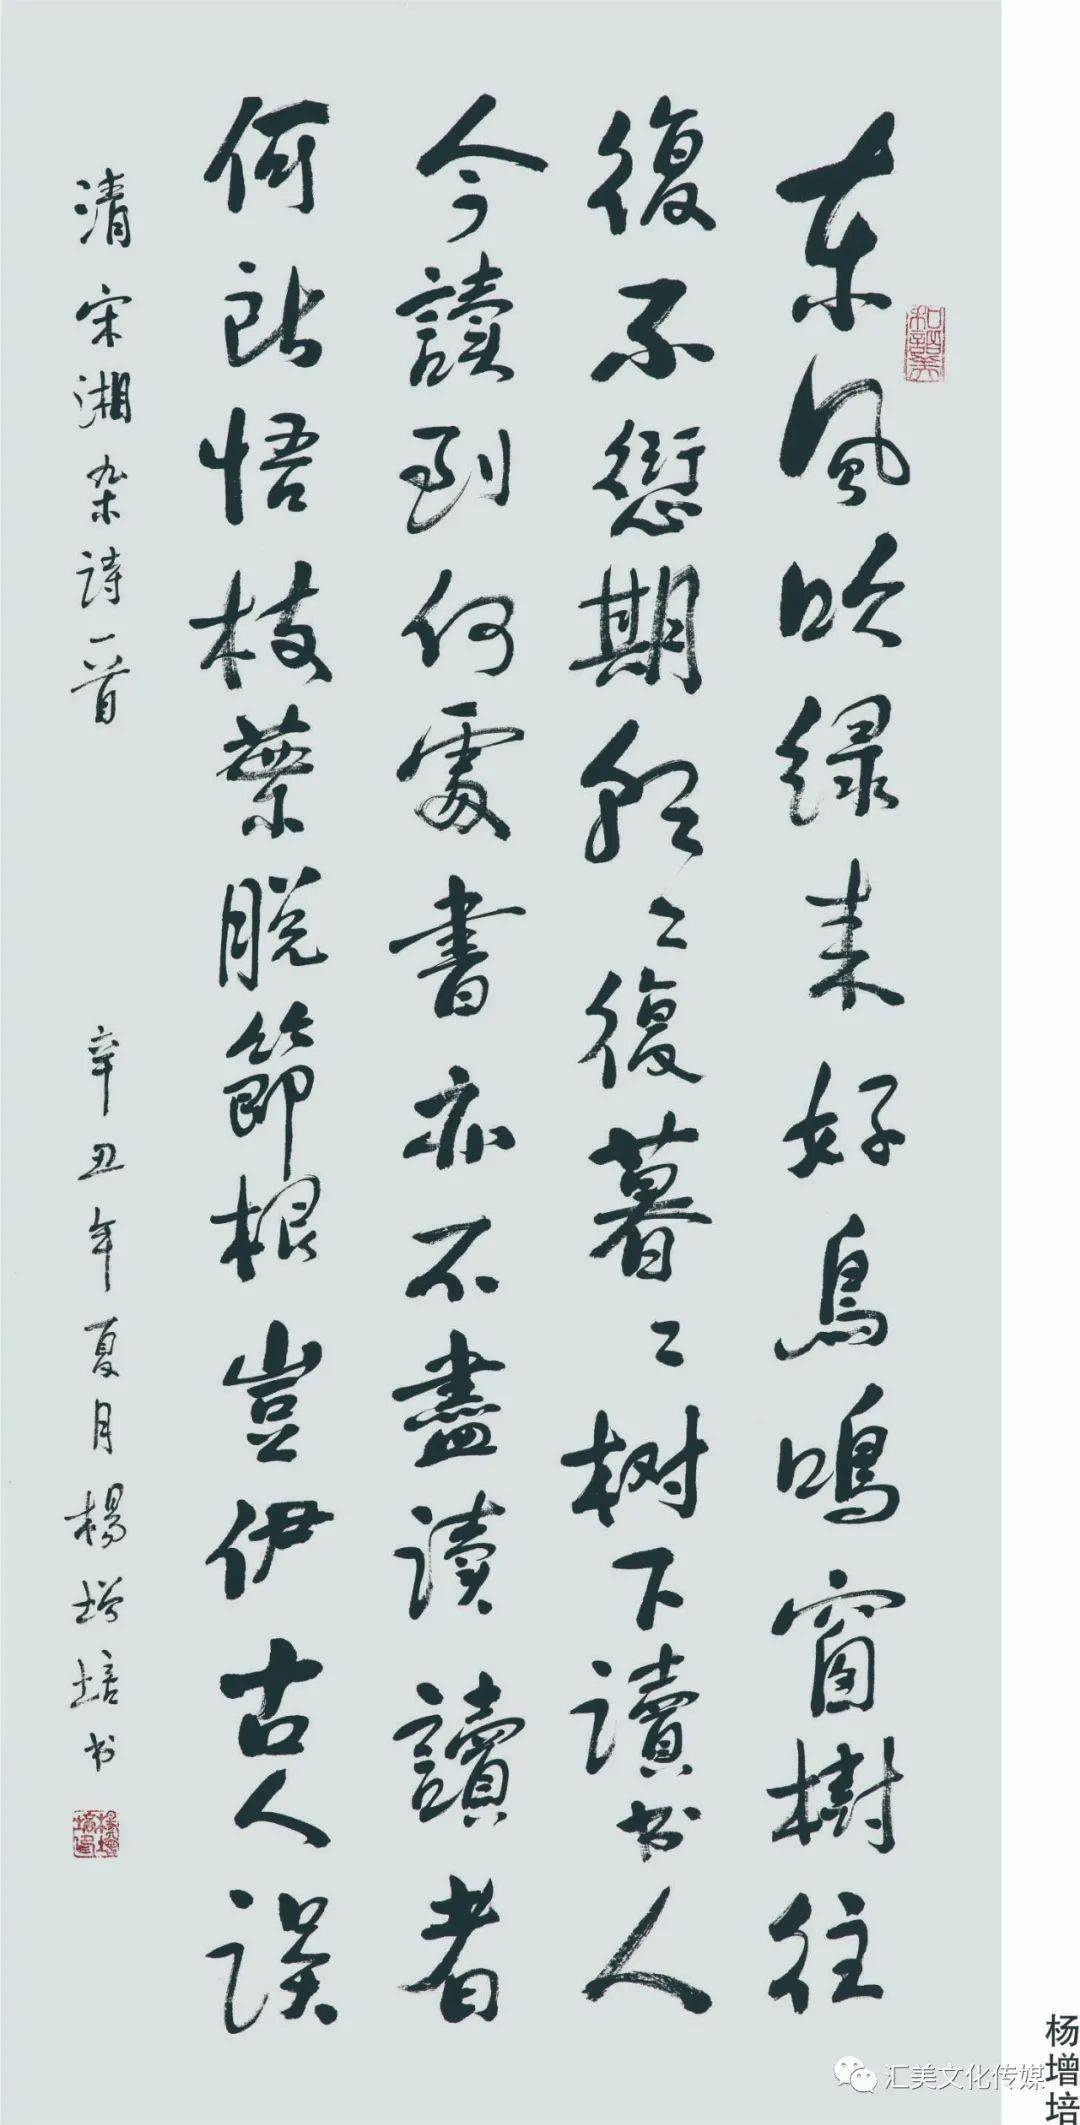 東風吹绿来好鳥鳴窗樹往
復不愆期朝々復暮々树下读书人
今讀到何處書亦不盡读讀者
何所悟枝葉脱節根豈伊古人误
清宋湘杂詩一首
辛丑年夏月楊增培书
和諧美
杨增培
汇美文化传媒